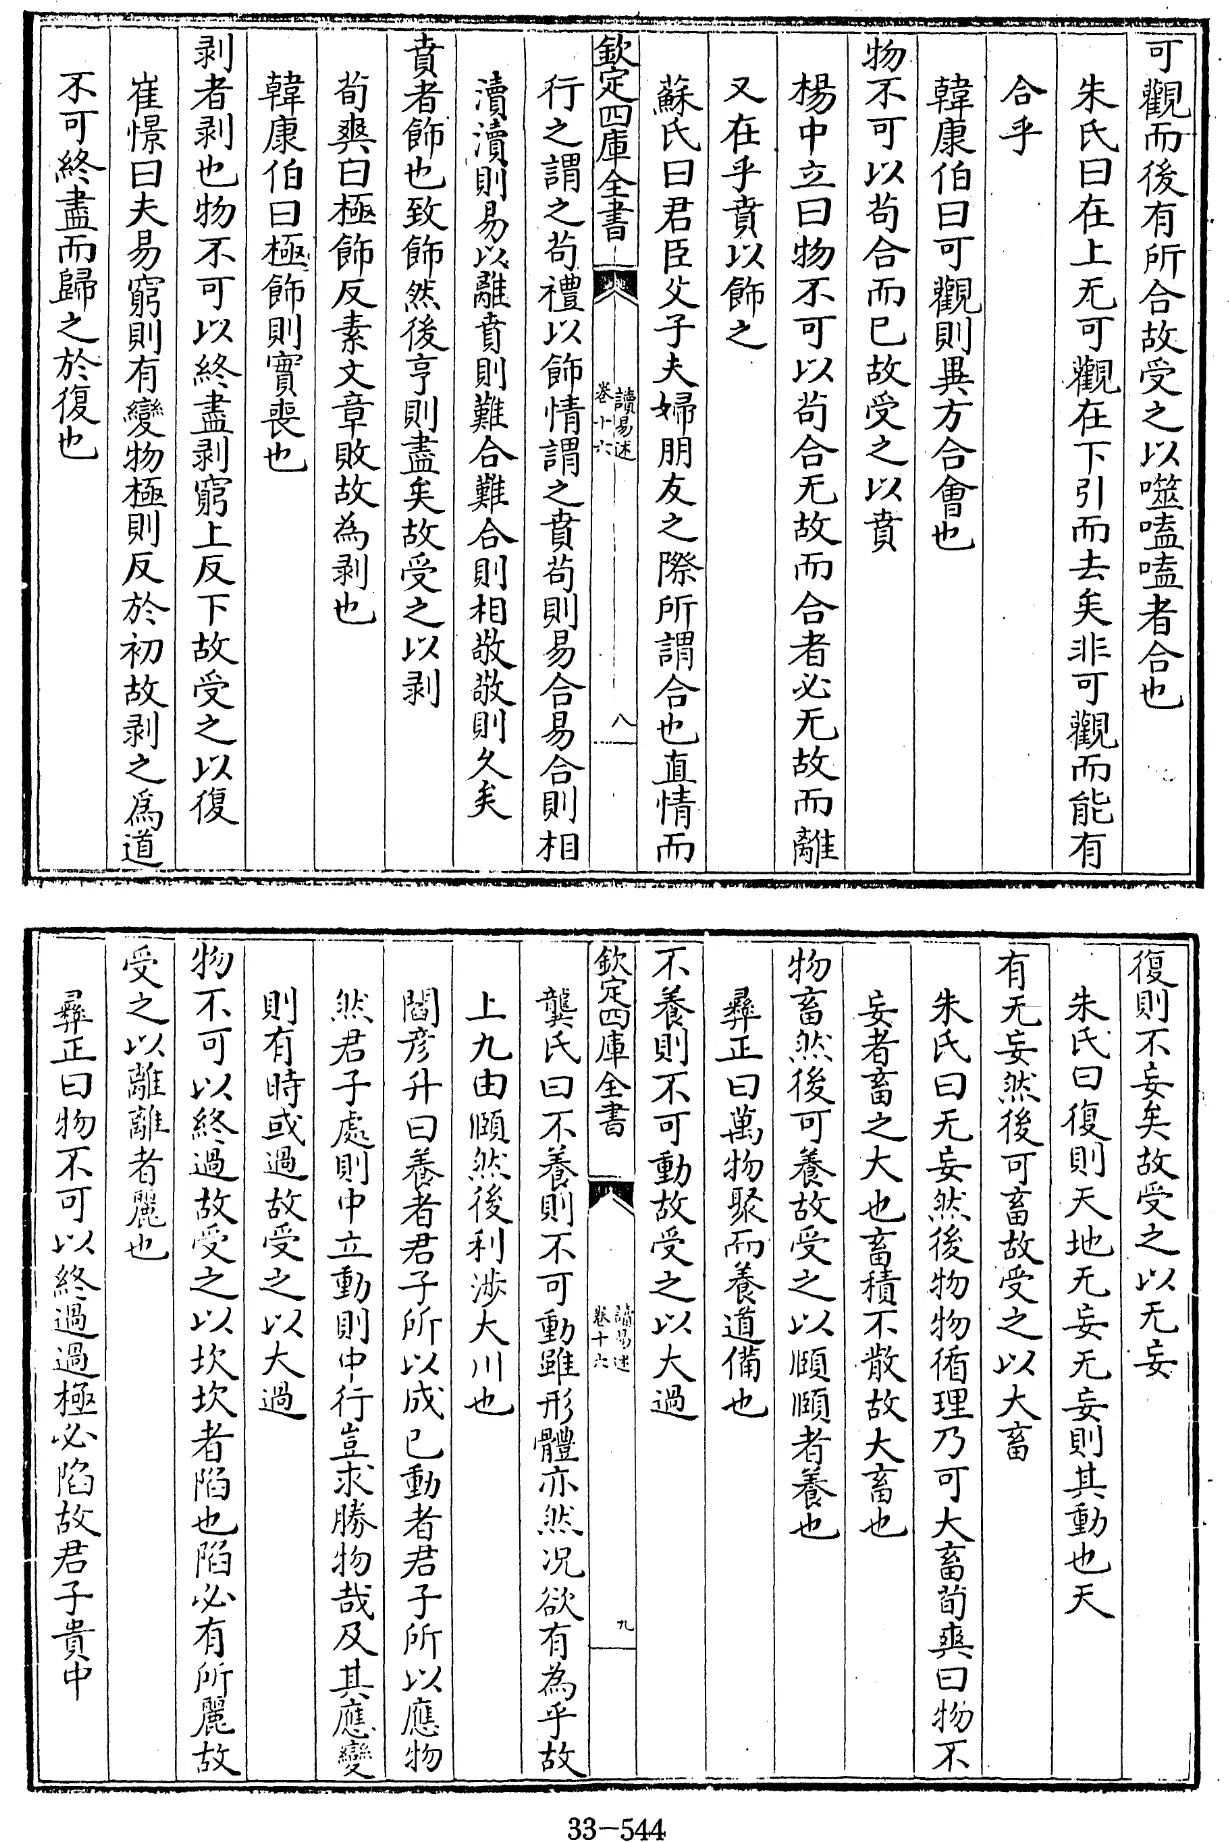 可觀而後有所合故受之以噬嗑嗑者合也
朱氏曰在上无可觀在下引而去矣非可觀而能有
合乎
韓康伯曰可觀則異方合會也
物不可以茍合而已故受之以賁
楊中立曰物不可以茍合无故而合者必无故而離
又在乎賁以飾之
蘇氏曰君臣父子夫婦朋友之際所謂合也直情而
欽定四庫全書
讀易述
卷十六
八
行之謂之茍禮以飾情謂之賁茍則易合易合則相
瀆瀆則易以離賁則難合難合則相敬敬則久矣
賁者飾也致飾然後亨則盡矣故受之以剥
荀爽曰極飾反素文章敗故為剥也
韓康伯曰極飾則實喪也
剥者剥也物不可以終盡剥窮上反下故受之以復
崔憬曰夫易窮則有變物極則反於初故剥之爲道
不可終盡而歸之於復也
復則不妄矣故受之以无妄
朱氏曰復則天地无妄无妄則其動也天
有无妄然後可畜故受之以大畜
朱氏曰无妄然後物物循理乃可大畜荀爽曰物不
妄者畜之大也畜積不散故大畜也
物畜然後可養故受之以頤頤者養也
彞正曰萬物聚而養道備也
不養則不可動故受之以大過
欽定四庫全書
讀易述
卷十六
九
龔氏曰不養則不可動雖形體亦然况欲有為乎故
上九由頤然後利涉大川也
閻彦升曰養者君子所以成已動者君子所以應物
然君子處則中立動則中行豈求勝物哉及其應變
則有時或過故受之以大過
物不可以終過故受之以坎坎者陷也陷必有所麗故
受之以離離者麗也
彞正曰物不可以終過過極必陷故君子貴中
33-544